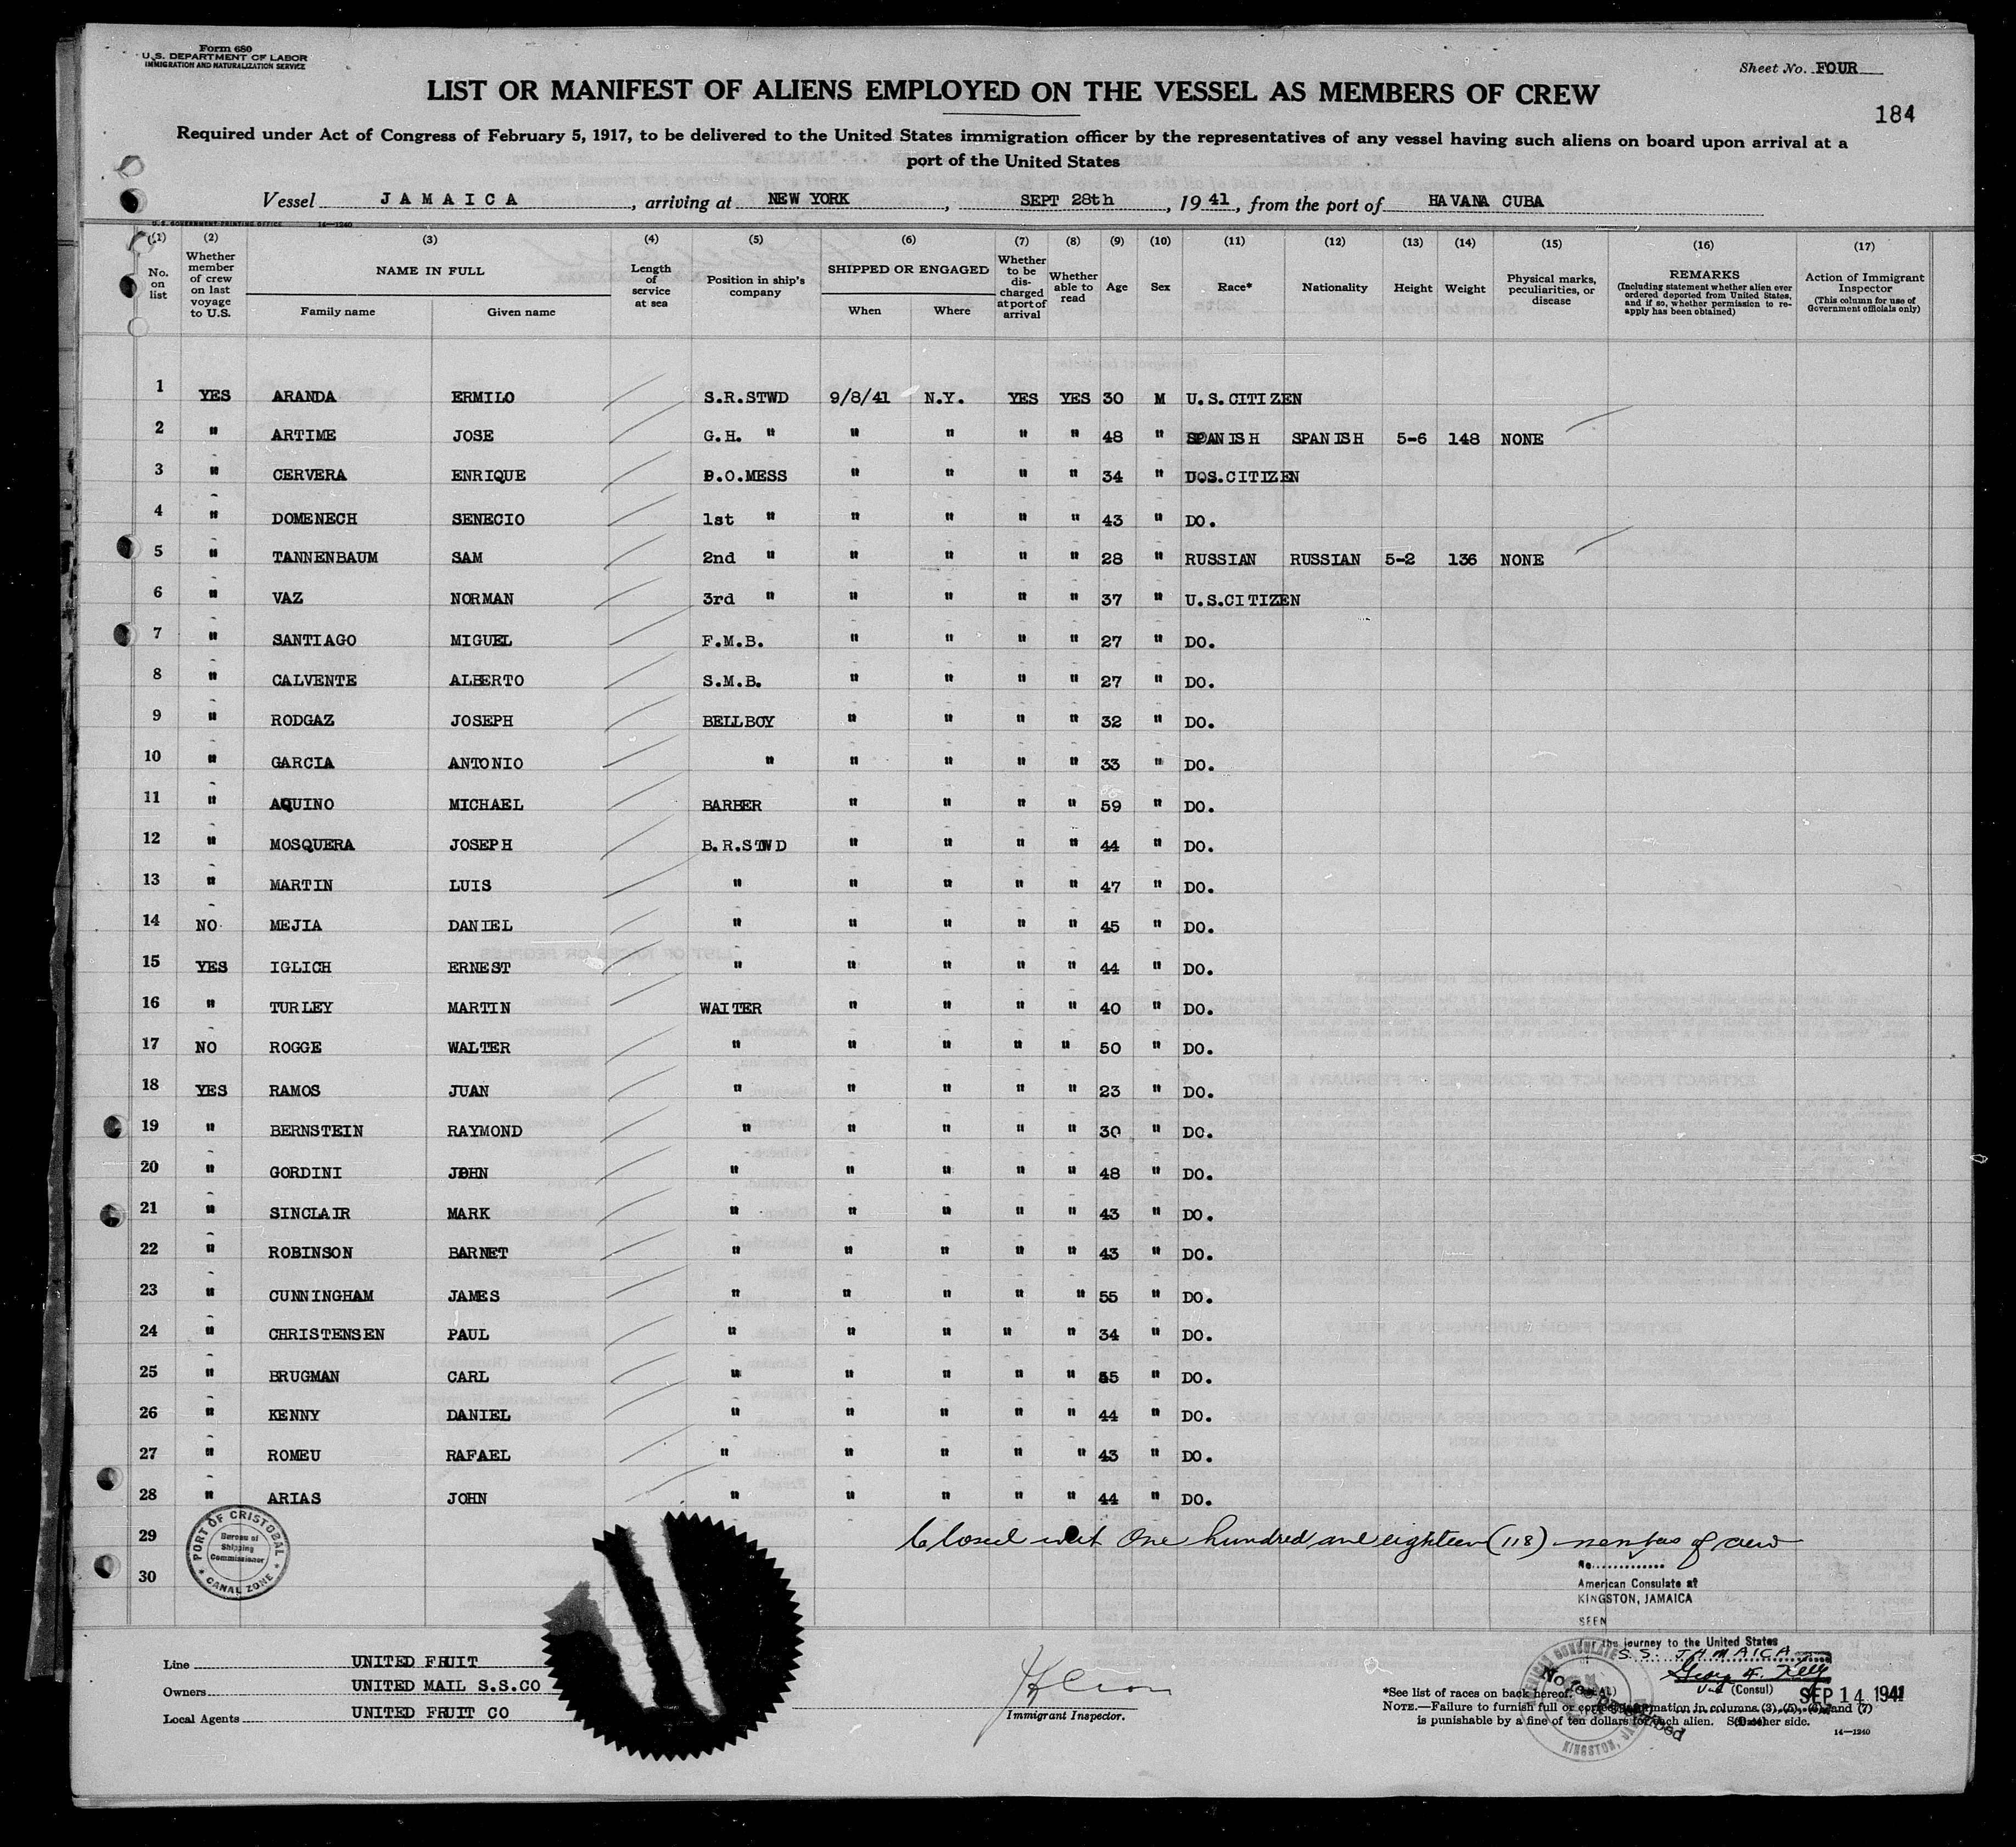 Form 680
U.S. DEPARTMENT OF LABOR
IMMIGRATION AND NATURALIZATION SERVICE
Sheet No. FOUR
LIST OR MANIFEST OF ALIENS EMPLOYED ON THE VESSEL AS MEMBERS OF CREW
184
Required under Act of Congress of February 5, 1917, to be delivered to the United States immigration officer by the representatives of any vessel having such aliens on board upon arrival at a
port of the United States
Vessel JAMAICA, arriving at NEW YORK, SEPT 28th, 1941, from the port of HAVANA CUBA
U.S. GOVERNMENT PRINTING OFFICE 14—1240
(1) (2) (3) (4) (5) (6) (7) (8) (9) (10) (11) (12) (13) (14) (15) (16) (17)
No. on list
Whether member of crew on last voyage to U.S.
NAME IN FULL
Family name
Given name
Length of service at sea
Position in ship's company
SHIPPED OR ENGAGED
When
Where
Whether to be discharged at port of arrival
Whether able to read
Age
Sex
Race*
Nationality
Height
Weight
Physical marks, peculiarities, or disease
REMARKS
(Including statement whether alien ever ordered deported from United States, and if so, whether permission to reapply has been obtained)
Action of Immigrant Inspector
(This column for use of Government officials only)
1 YES ARANDA ERMILO S.R.STWD 9/8/41 N.Y. YES YES 30 M U.S.CITIZEN
2 " ARTIME JOSE G.H. " " " " " 48 " SPANISH SPANISH 5-6 148 NONE
3 " CERVERA ENRIQUE P.O.MESS " " " " 34 " U.S.CITIZEN
4 " DOMENECH SENECIO 1st " " " " " 43 " DO.
5 " TANNENBAUM SAM 2nd " " " " " 28 " RUSSIAN RUSSIAN 5-2 136 NONE
6 " VAZ NORMAN 3rd " " " " " 37 " U.S.CITIZEN
7 " SANTIAGO MIGUEL F.M.B. " " " " 27 " DO.
8 " CALVENTE ALBERTO S.M.B. " " " " 27 " DO.
9 " RODGAZ JOSEPH BELLBOY " " " " 32 " DO.
10 " GARCIA ANTONIO " " " " " 33 " DO.
11 " AQUINO MICHAEL BARBER " " " " 59 " DO.
12 " MOSQUERA JOSEPH B.R.STWD " " " " 44 " DO.
13 " MARTIN LUIS " " " " " 47 " DO.
14 NO MEJIA DANIEL " " " " " 45 " DO.
15 YES IGLICH ERNEST " " " " " 44 " DO.
16 " TURLEY MARTIN WAITER " " " " 40 " DO.
17 NO ROGGE WALTER " " " " " 50 " DO.
18 YES RAMOS JUAN " " " " " 23 " DO.
19 " BERNSTEIN RAYMOND " " " " " 30 " DO.
20 " GORDINI JOHN " " " " " 48 " DO.
21 " SINCLAIR MARK " " " " " 43 " DO.
22 " ROBINSON BARNET " " " " " 43 " DO.
23 " CUNNINGHAM JAMES " " " " " 55 " DO.
24 " CHRISTENSEN PAUL " " " " " 34 " DO.
25 " BRUGMAN CARL " " " " " 55 " DO.
26 " KENNY DANIEL " " " " " 44 " DO.
27 " ROMEU RAFAEL " " " " " 43 " DO.
28 " ARIAS JOHN " " " " " 44 " DO.
29
30
PORT OF CRISTOBAL
Bureau of Shipping Commissioner
CANAL ZONE
Closed with One hundred and eighteen (118) members of crew
No.
American Consulate at
KINGSTON, JAMAICA
SEEN
For the journey to the United States
S.S. JAMAICA
(Consul)
SEP 14 1941
AMERICAN CONSULATE
KINGSTON, JAMAICA
No fee prescribed
Line UNITED FRUIT
Owners UNITED MAIL S.S.CO
Local Agents UNITED FRUIT CO
Immigrant Inspector.
*See list of races on back hereof.
NOTE.—Failure to furnish full or correct information in columns (3), (5), (6) and (7)
is punishable by a fine of ten dollars for each alien. See other side.
14—1240